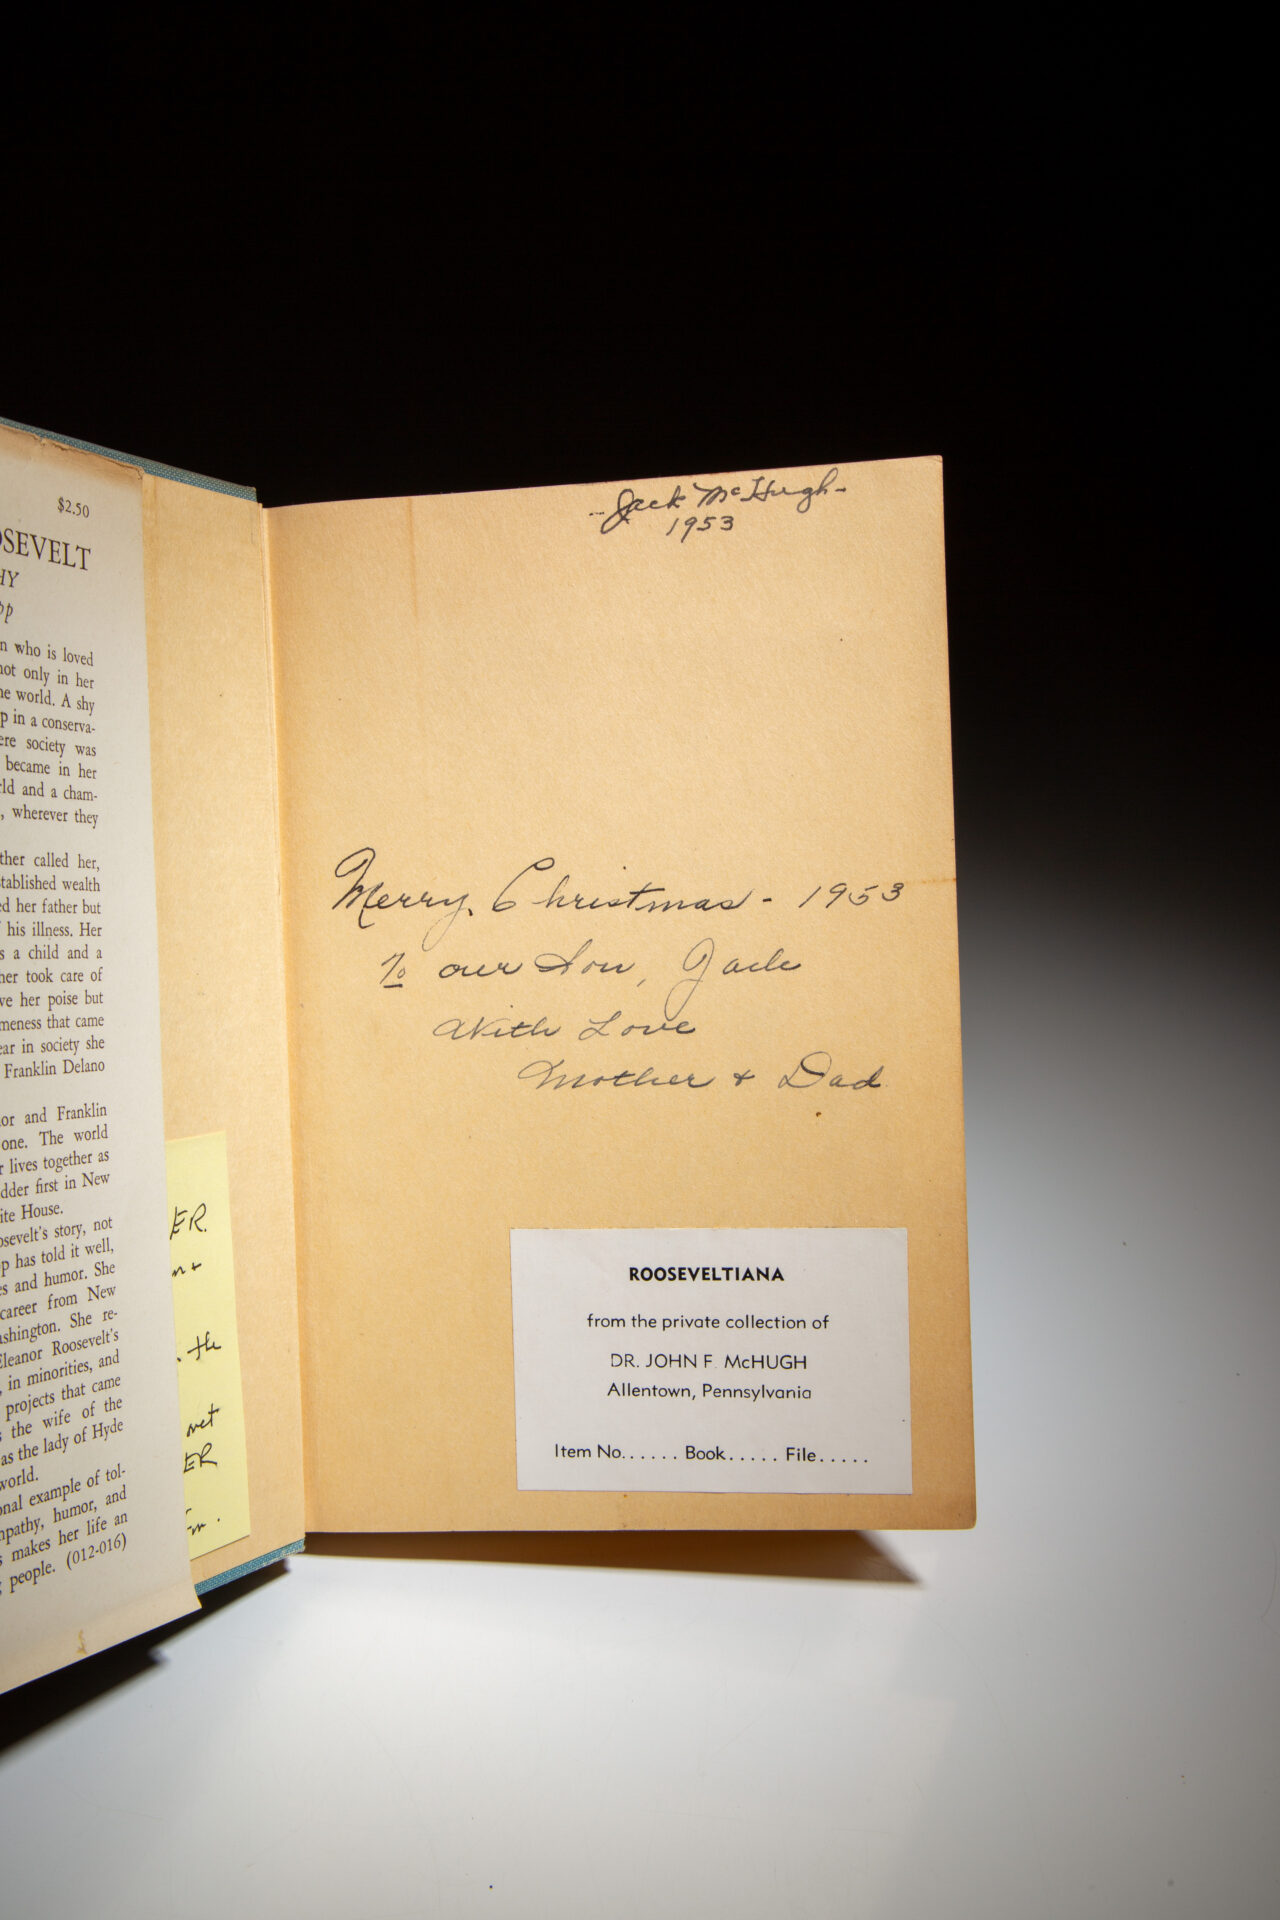 $2.50
OSEVELT
HY
pp
n who is loved
not only in her
he world. A shy
p in a conserva-
ere society was
became in her
rld and a cham-
, wherever they
ther called her,
tablished wealth
ed her father but
his illness. Her
s a child and a
her took care of
ve her poise but
meness that came
ear in society she
Franklin Delano
or and Franklin
one. The world
r lives together as
dder first in New
ite House.
osevelt's story, not
p has told it well,
es and humor. She
career from New
ashington. She re-
Eleanor Roosevelt's
, in minorities, and
projects that came
s the wife of the
as the lady of Hyde
world.
onal example of tol-
mpathy, humor, and
s makes her life an
g people. (012-016)
ER.
the
met
ER
- Jack McHugh -
1953
Merry Christmas - 1953
To our Son, Jack
With Love
Mother + Dad
ROOSEVELTIANA
from the private collection of
DR. JOHN F. McHUGH
Allentown, Pennsylvania
Item No...... Book..... File.....